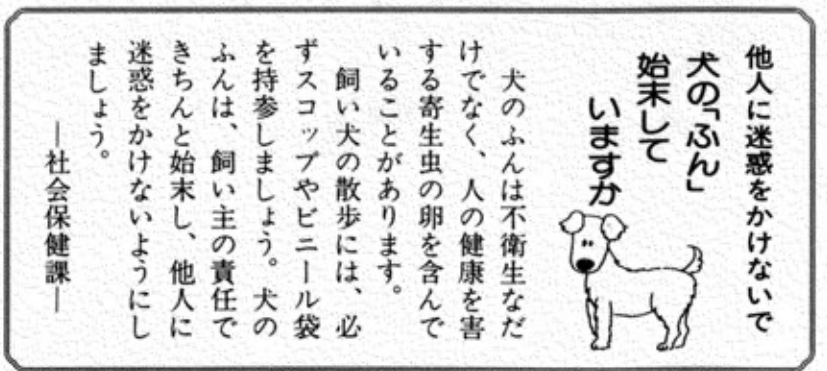 他人に迷惑をかけないで
犬の「ふん」
始末して
いますか
犬のふんは不衛生なだ
けでなく、人の健康を害
する寄生虫の卵を含んで
いることがあります。
飼い犬の散歩には、必
ずスコップやビニール袋
を持参しましょう。犬の
ふんは、飼い主の責任で
きちんと始末し、他人に
迷惑をかけないようにし
ましょう。
―社会保健課―